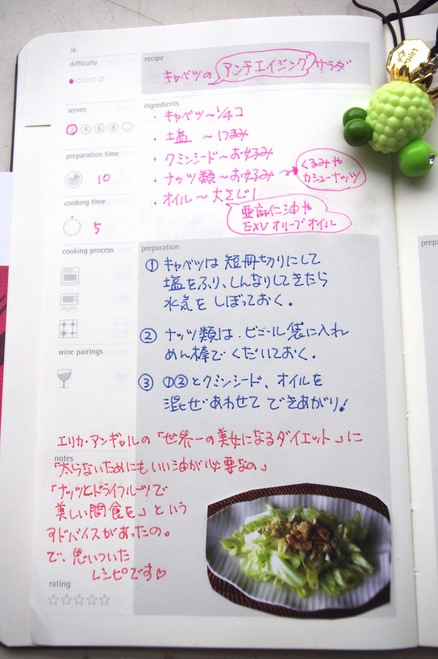 18
difficulty
recipe
キャベツの アンチエイジング サラダ
serves
2 4 6 8 ...
ingredients
・キャベツ〜1/4コ
・塩 〜1つまみ
・クミンシード〜お好み
・ナッツ類〜お好み
くるみや
カシューナッツ
・オイル〜大さじ1
亜麻仁油や
EXV オリーブオイル
preparation time
10
cooking time
5
cooking process
wine pairings
preparation
① キャベツは 短冊切りにして
塩をふり、しんなりしてきたら
水気を しぼっておく.
② ナッツ類は、ビニール袋に入れ
めん棒で くだいておく.
③ ①②とクミンシード、オイルを
混ぜあわせて できあがり!
エリカ・アンギャルの「世界一の美女になるダイエット」に
notes
「太らないためにもいい油が必要なの」
「ナッツとドライフルーツで
美しい間食を」という
アドバイスがあったの。
で、思いついた
レシピです♡
rating